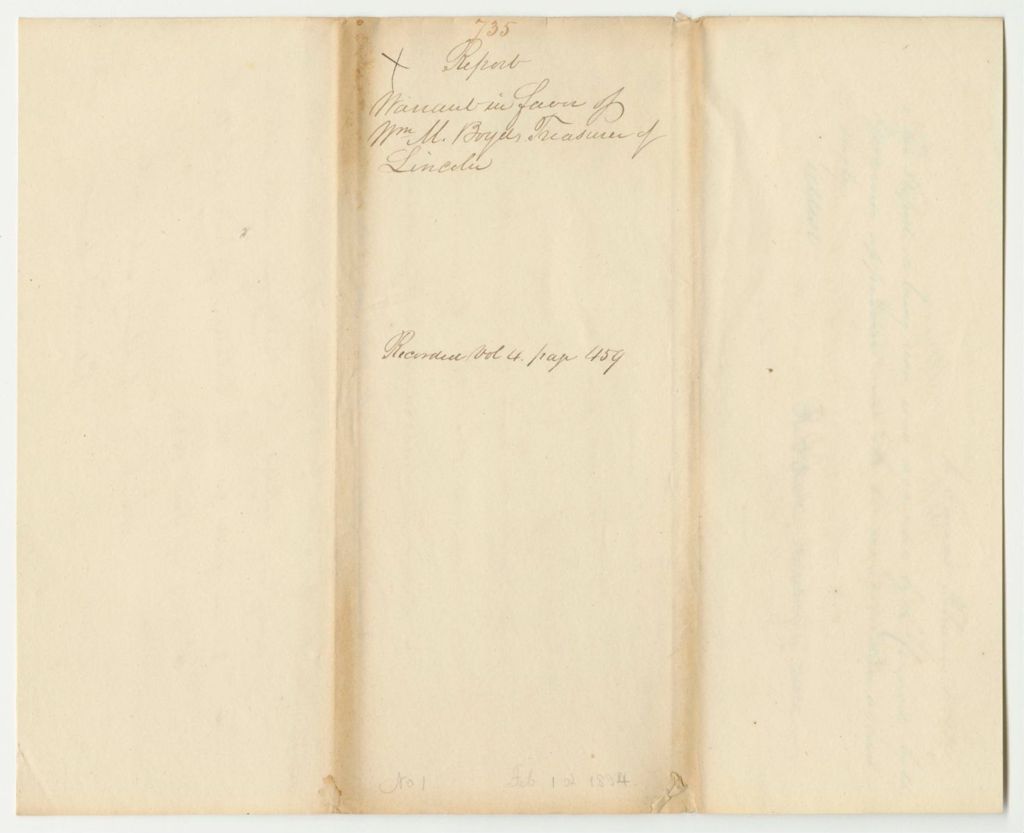 735
X Report
Warrant in favor of
Wm M. Boyds Treasurer of
Lincoln
Recorded Vol 4. page 459
No 1 Feb 1834